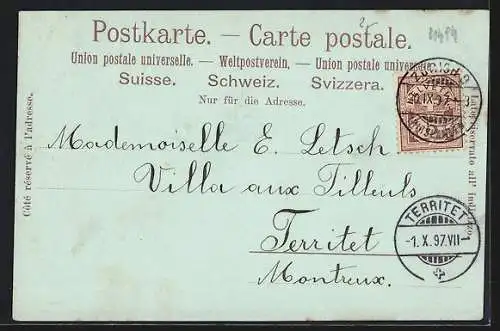 Postkarte. — Carte postale.
Union postale universelle. — Weltpostverein. — Union postale universelle
Suisse. Schweiz. Svizzera.
Nur für die Adresse.
Côté réservé à l'adresse.
Lato riservato all' indirizzo.
ZÜRICH
30.IX.97
HELVETIA
Mademoiselle E. Letsch
Villa aux Tilleuls
Territet
Montreux.
TERRITET
-1.X.97.VII-1